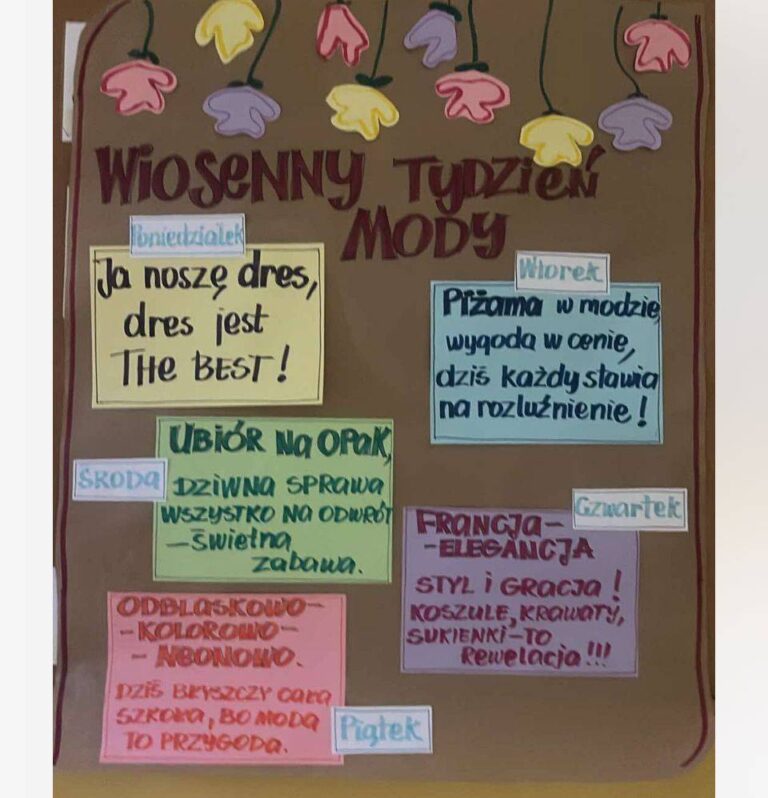 WIOSENNY TYDZIEŃ
MODY
Poniedziałek
Ja noszę dres,
dres jest
THE BEST!
Wtorek
PIŻAMA w modzie,
wygoda w cenie,
dziś każdy stawia
na rozluźnienie!
ŚRODA
UBIÓR NA OPAK,
DZIWNA SPRAWA
WSZYSTKO NA ODWRÓT
-świetna
zabawa.
Czwartek
FRANCJA-
-ELEGANCJA
STYL i GRACJA!
KOSZULE, KRAWATY,
SUKIENKI-TO
Rewelacja!!!
ODBLASKOWO-
-KOLOROWO-
-NEONOWO.
DZIŚ BŁYSZCZY CAŁA
SZKOŁA, BO MODA
TO PRZYGODA.
Piątek